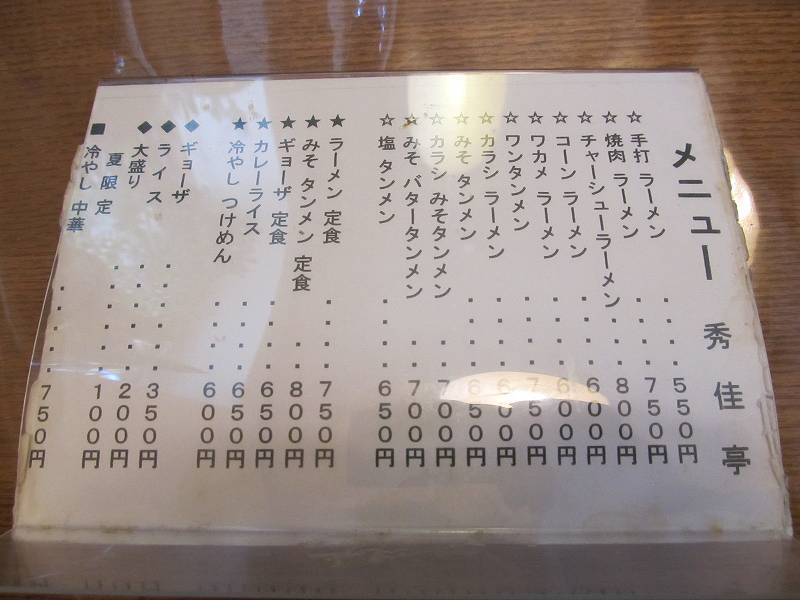 メニュー 秀佳亭
☆ 手打 ラーメン ・・・・ 550円
☆ 焼肉 ラーメン ・・・・ 750円
☆ チャーシューラーメン ・・・ 800円
☆ コーン ラーメン ・・・・ 600円
☆ ワカメ ラーメン ・・・・ 600円
☆ ワンタンメン ・・・・ 750円
☆ カラシ ラーメン ・・・・ 600円
☆ みそ タンメン ・・・・ 650円
☆ カラシ みそタンメン ・・・ 700円
☆ みそ バタータンメン ・・・ 700円
☆ 塩 タンメン ・・・・ 650円
★ ラーメン 定食 ・・・・ 750円
★ みそ タンメン 定食 ・・・ 800円
★ ギョーザ 定食 ・・・・ 650円
★ カレーライス ・・・・ 650円
★ 冷やし つけめん ・・・・ 600円
◆ ギョーザ ・・・・ 350円
◆ ライス ・・・・ 200円
◆ 大盛り ・・・・ 100円
夏 限定
■ 冷やし 中華 ・・・・ 750円